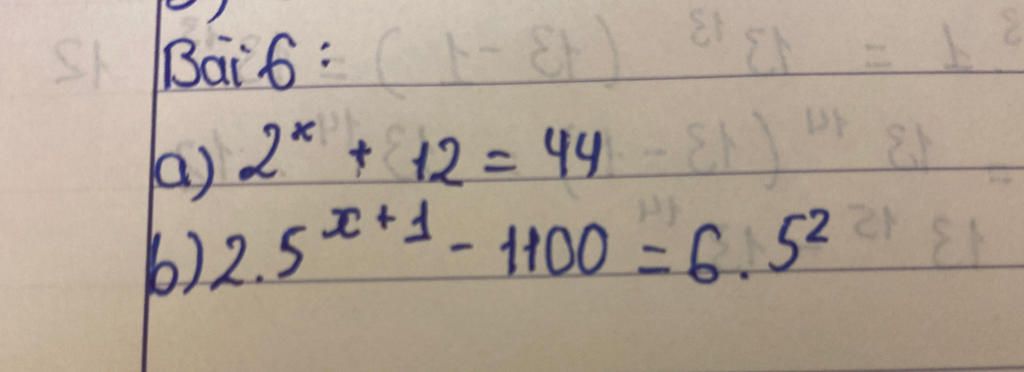 Bài 6:
a) 2ˣ + 12 = 44
b) 2.5ˣ⁺¹ - 1100 = 6.5²